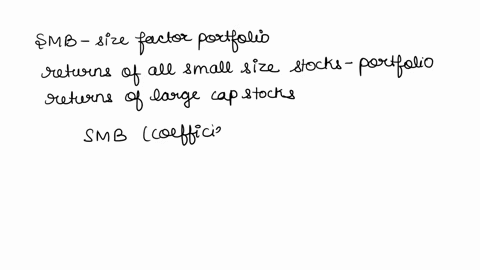 SMB - size factor portfolio
returns of all small size stocks - portfolio
returns of large cap stocks
SMB (coeffici